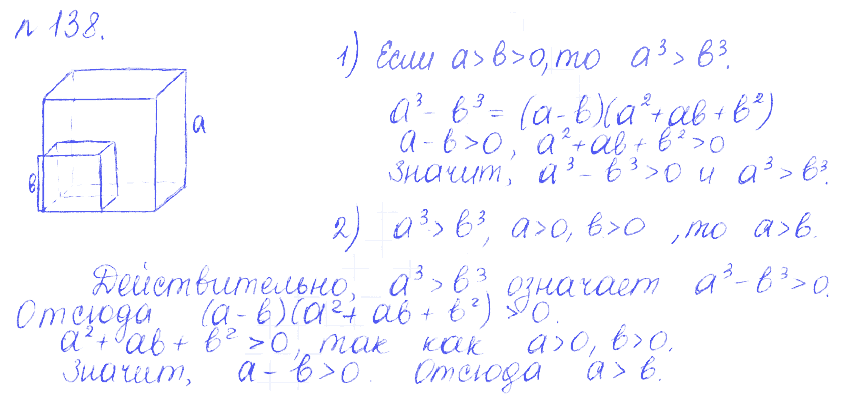 № 138.
1) Если a > b > 0, то a³ > b³.
a³ - b³ = (a - b)(a² + ab + b²)
a - b > 0, a² + ab + b² > 0
Значит, a³ - b³ > 0 и a³ > b³.
a
b
2) a³ > b³, a > 0, b > 0, то a > b.
Действительно, a³ > b³ означает a³ - b³ > 0.
Отсюда (a - b)(a² + ab + b²) > 0.
a² + ab + b² > 0, так как a > 0, b > 0.
Значит, a - b > 0. Отсюда a > b.